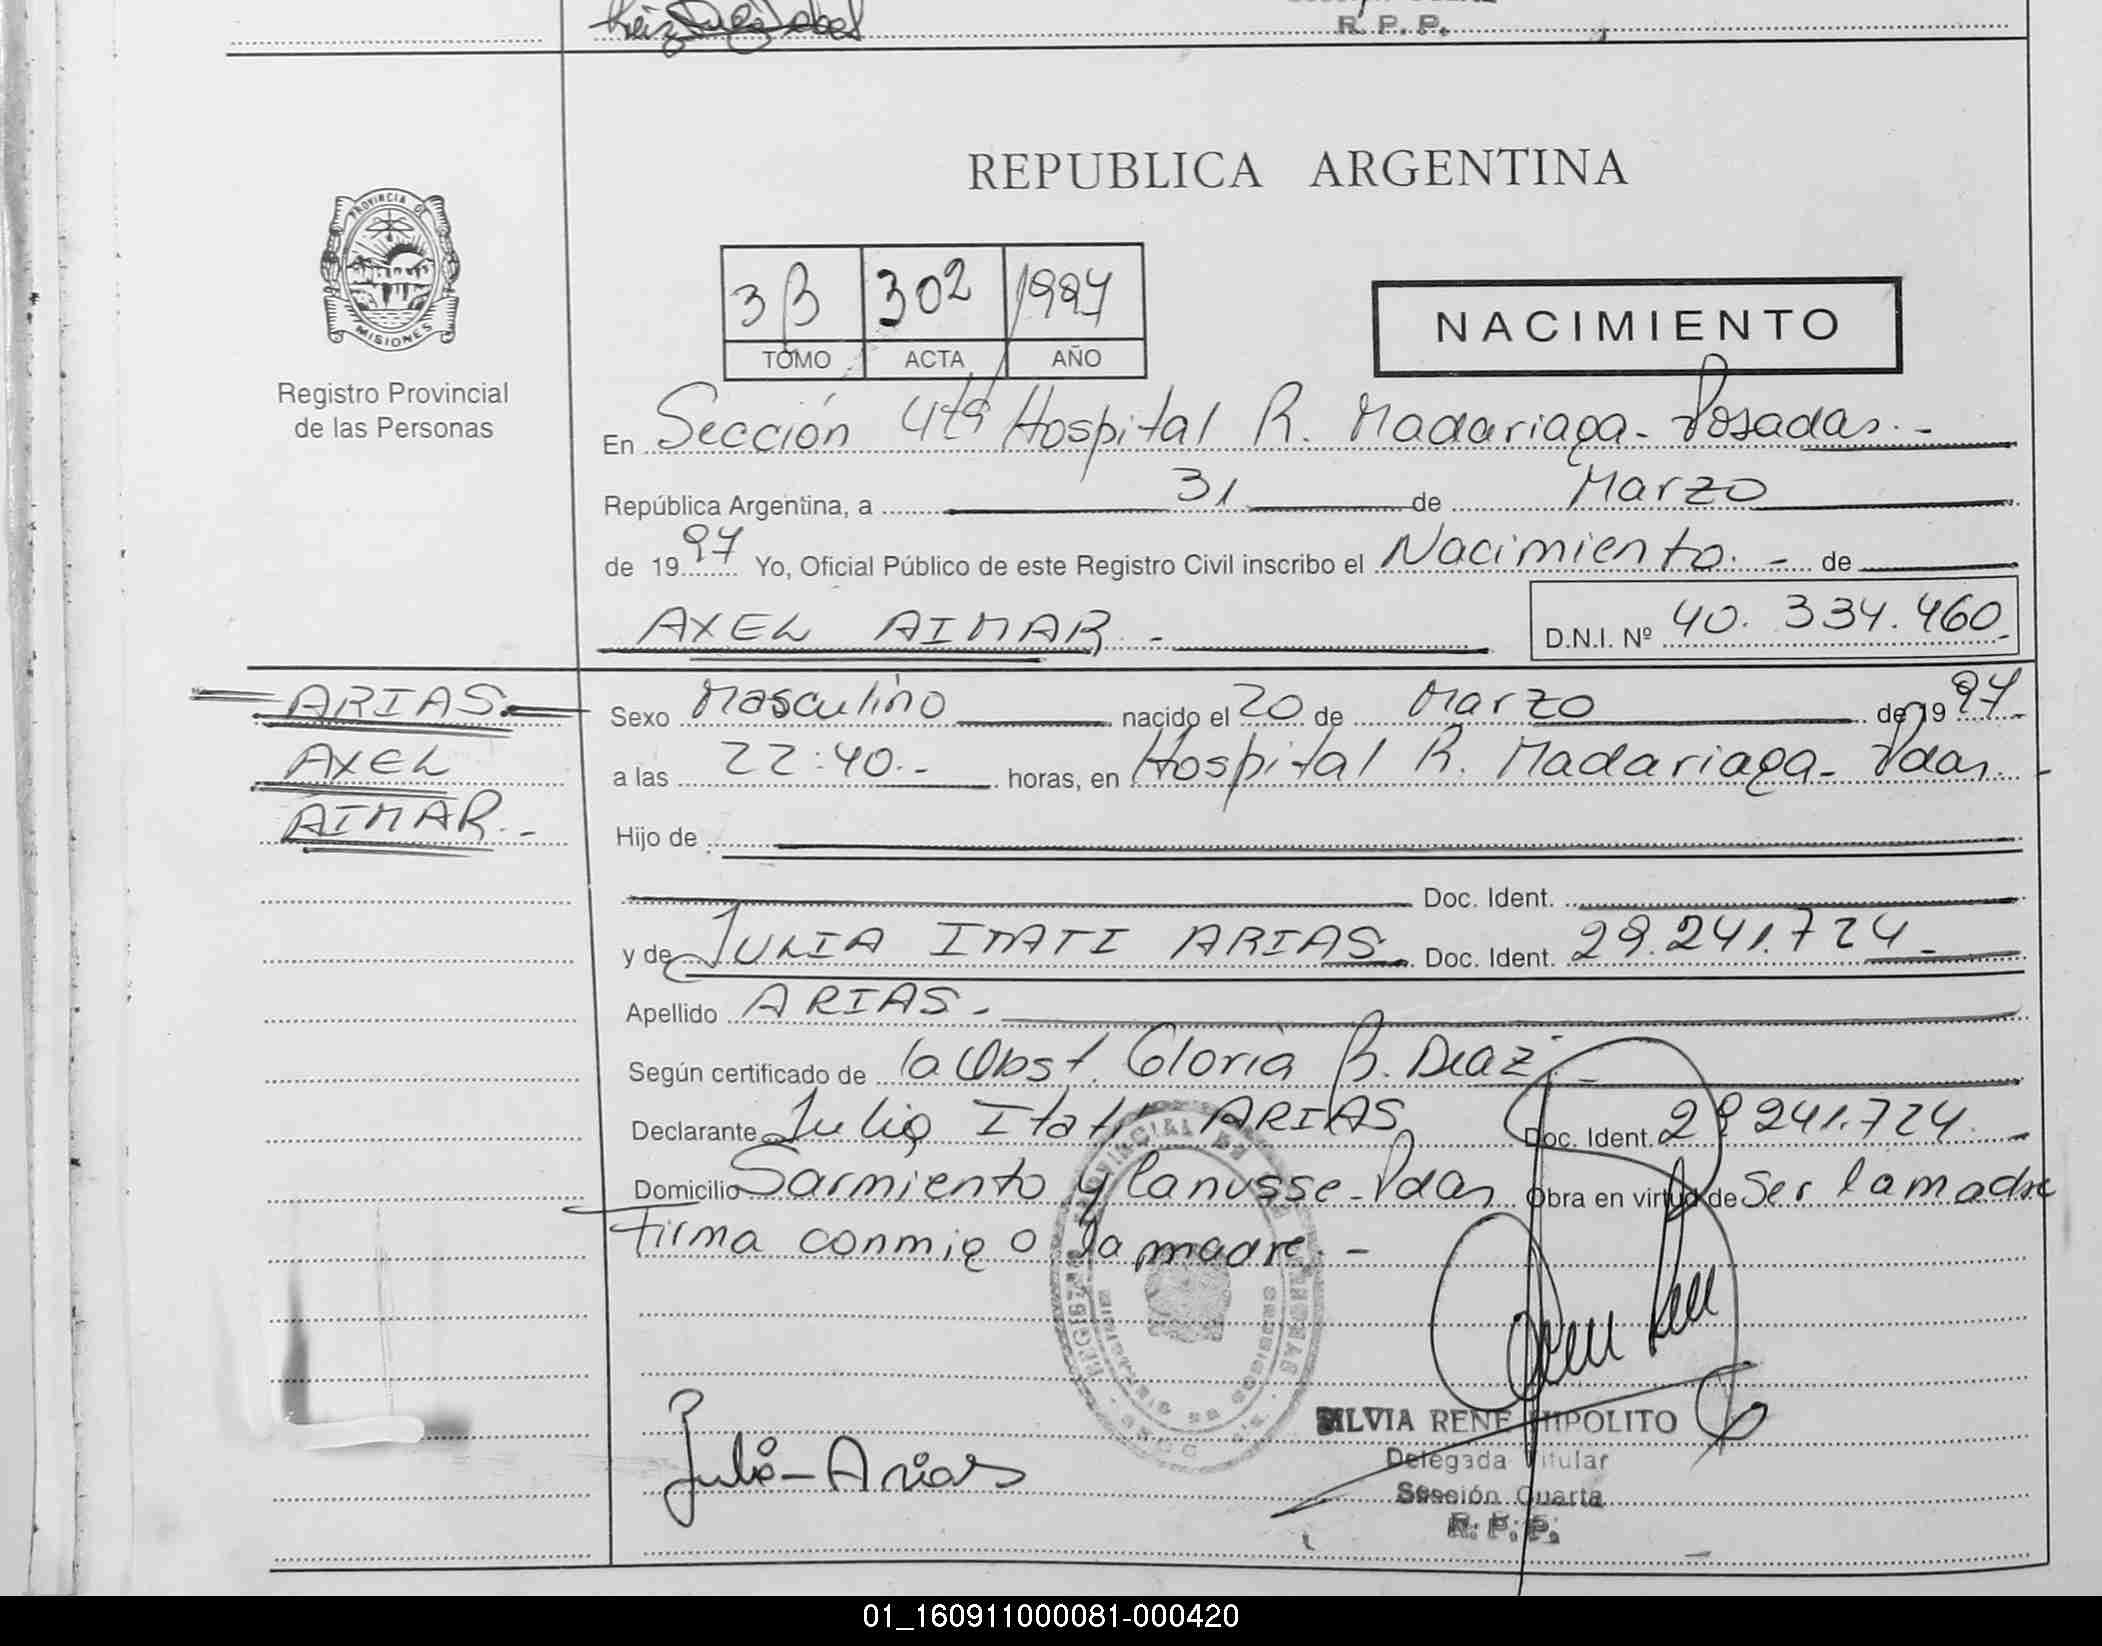 R. P. P.
PROVINCIA DE
MISIONES
Registro Provincial
de las Personas
REPUBLICA ARGENTINA
3B 302 1997
TOMO ACTA AÑO
NACIMIENTO
En Sección 4ta Hospital R. Madariaga - Posadas. -
República Argentina, a 31 de Marzo
de 1997 Yo, Oficial Público de este Registro Civil inscribo el Nacimiento. - de
AXEL AIMAR - D.N.I. Nº 40.334.460 -
ARIAS
AXEL
AIMAR. -
Sexo Masculino nacido el 20 de Marzo de 1997 -
a las 22:40. - horas, en Hospital R. Madariaga - Pdas. -
Hijo de
Doc. Ident.
y de JULIA ITATI ARIAS Doc. Ident. 29.241.724 -
Apellido ARIAS -
Según certificado de la Obst. Gloria B. Diaz. -
Declarante Julia Itati ARIAS Doc. Ident. 29.241.724 -
Domicilio Sarmiento y Lanusse - Pdas Obra en virtud de Ser la madre
firma conmigo la madre. -
Julia - Arias
SILVIA RENE HIPOLITO
Delegada Titular
Sección Cuarta
R. P. P.
01_160911000081-000420